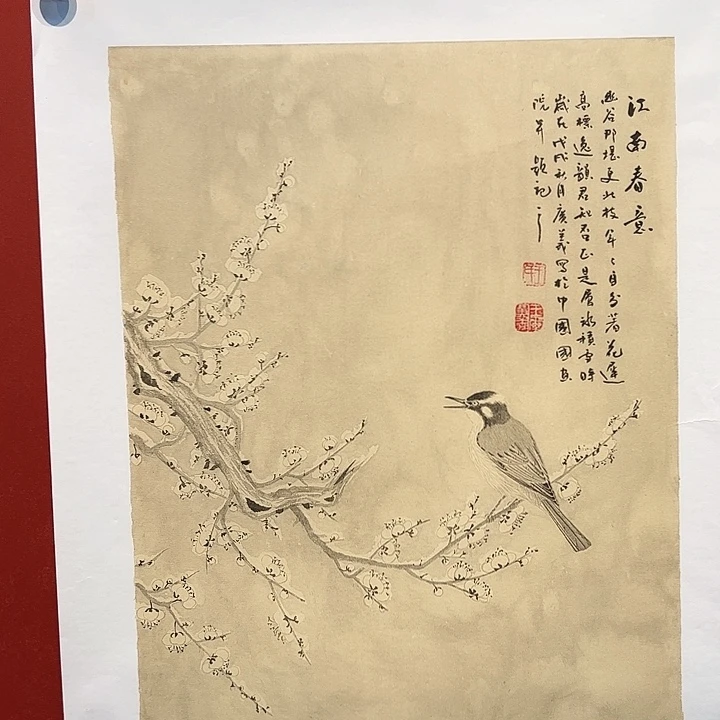 江南春意
幽谷那堪更北枝年々自分著花遲
高標逸韻君知否正是層冰積雪時
歲在戊戌秋月廣義寫於中國國畫
院并題記之